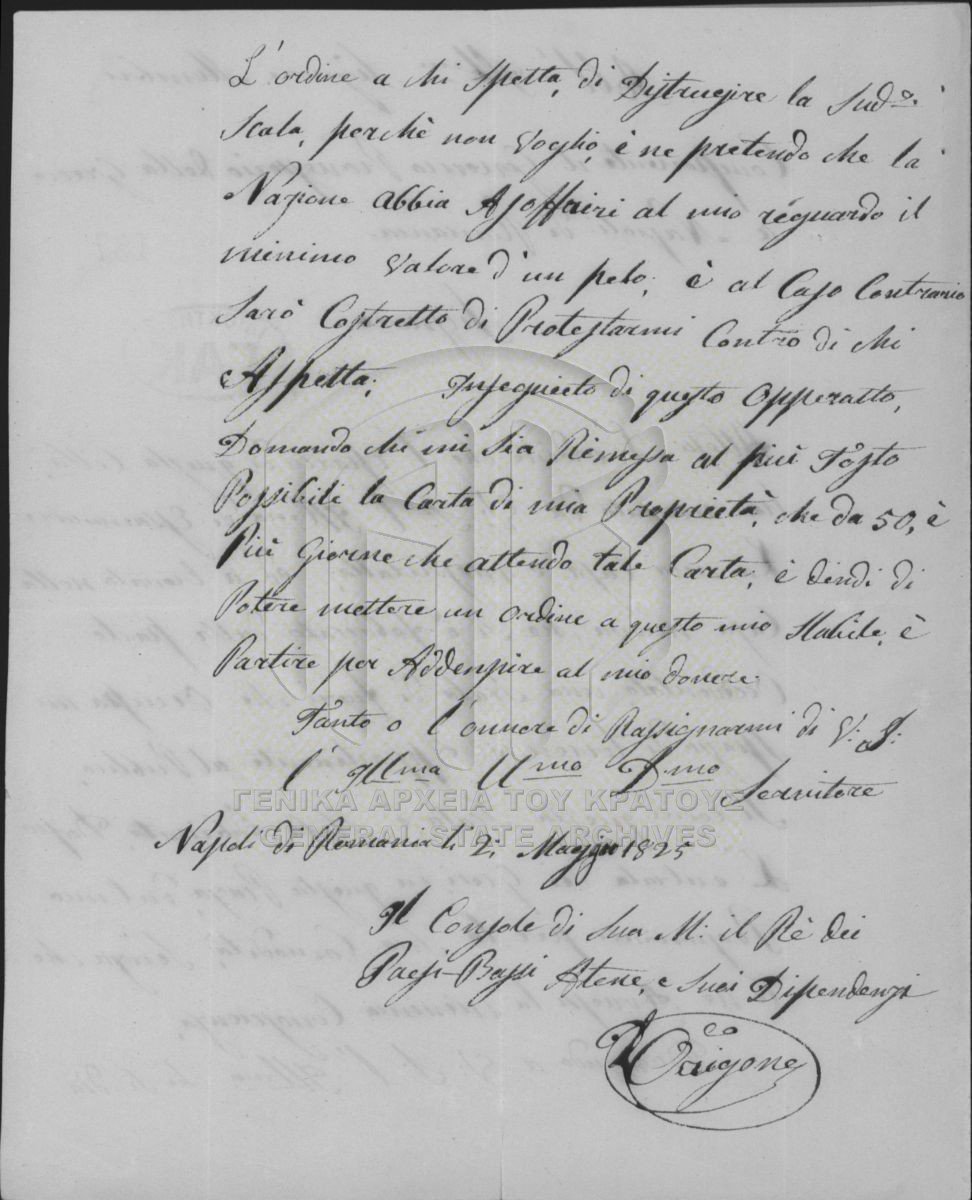 L'ordine a chi spetta, di Distrugire la Sud.a
Scala, perchè non voglio, è ne pretendo che la
Nazione abbia A soffrire al mio réguardo il
minimo valore d'un pelo; è al Caso Contrario
Sarò Costretto di Protestarmi Contro di chi
Aspetta; Inseguieto di questo Opperatto,
Domando chi mi sia Rimessa al più Tosto
Possibile la Carta di mia Proprietà, che da 50, è
Più Giorne che attendo tale Carta, è dindi di
Potere mettere un ordine a questo mio Stabile, è
Partire per Addempire al mio dovere.
Tanto o l'onnore di Rassignarmi di V: S:
l' Illma Umo Dmo Servitore
ΓΕΝΙΚΑ ΑΡΧΕΙΑ ΤΟΥ ΚΡΑΤΟΥΣ
GENERAL STATE ARCHIVES
Napoli di Romania li 2; Maggio 1825
Il Console di Sua M: il Rè dei
Paesi-Bassi Atene, e Suoi Dipendenzi
Origone